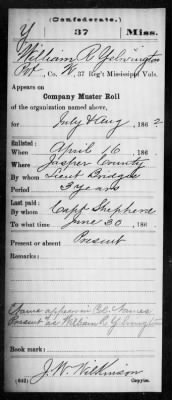 (Confederate.)
Y 37 Miss.
William R Yelvington
Pvt, Co. K, 37 Reg't Mississippi Vols.
Appears on
Company Muster Roll
of the organization named above,
for July & Aug, 186 2
Enlisted:
When April 16, 186
Where Jasper County
By whom Lieut Bridges
Period 3 years
Last paid:
By whom Capt Shepherd
To what time June 30, 186
Present or absent Present
Remarks:
Name appears in Col. Names
Present as William R Yelvington
Book mark:
J. W. Wilkinson
(642) Copyist.